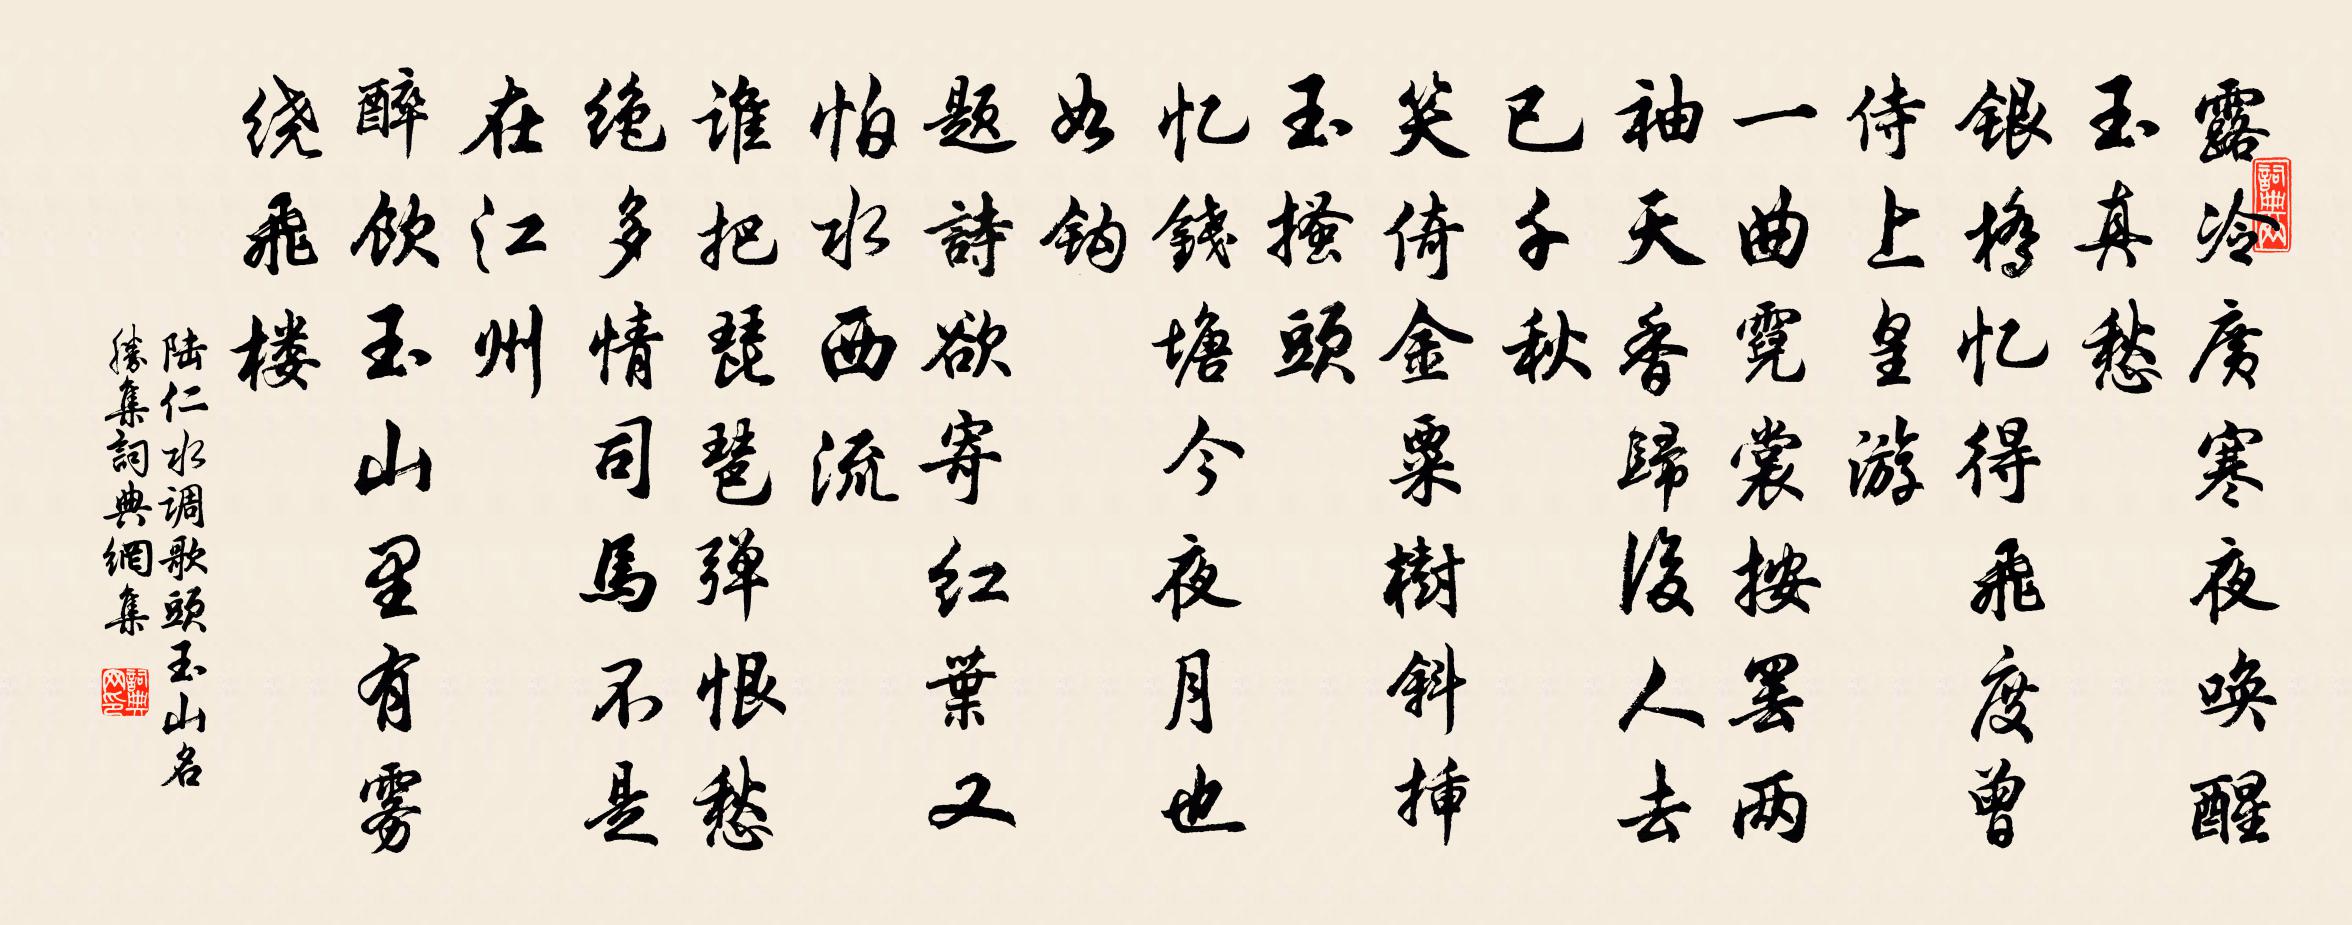 露冷广寒夜唤醒
玉真愁
银桥忆得飛度曾
侍上皇游
一曲霓裳按罢两
袖天香歸後人去
已千秋
笑倚金粟樹斜挿
玉搔頭
忆錢塘今夜月也
如鈎
题詩欲寄红葉又
怕水西流
谁把琵琶弹恨愁
绝多情司馬不是
在江州
醉飲玉山里有雾
绕飛楼
陆仁水调歌頭玉山名
勝集詞典網集
詞典网
詞典网印